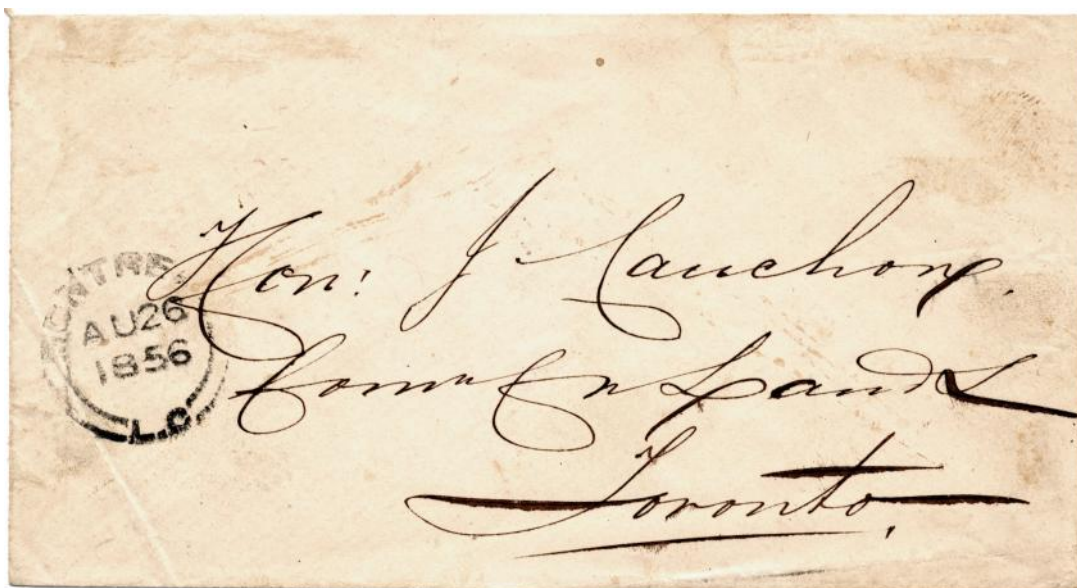 MONTREAL
AU 26
1856
L.C.
Hon: J Cauchon,
Comr Crn Lands
Toronto.